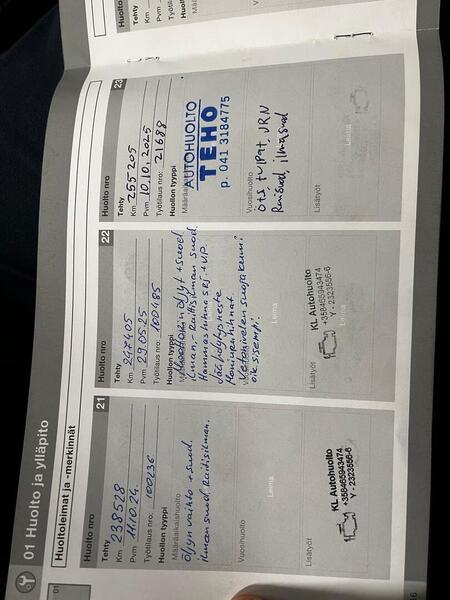 01 Huolto ja ylläpito
Huoltoleimat ja -merkinnät
01
Huolto nro 21
Tehty
Km 238528
Pvm 11.10.24.
Työtilaus nro: 100236
Huollon tyyppi
Määräaikaishuolto
Öljyn vaihto + suod.
ilman suod. Raitisilman.
Vuosihuolto
Leima
Lisätyöt
KL Autohuolto
+358465943474
Y - 2323556-6
Huolto nro 22
Tehty
Km 247405
Pvm 29.05.25
Työtilaus nro: 100485
Huollon tyyppi
Moottorin öljyt + suod.
Ilman,- Raitisilman suod.
Hammashihna srj + V.P.
Jäähdytysneste
Moniurahihnat.
Vetonivelen suojakumi
oik. sisempi.
Leima
Lisätyöt
KL Autohuolto
+358465943474
Y - 2323556-6
Leima
Huolto nro 23
Tehty
Km 255205
Pvm 10.10.2025
Työtilaus nro: 21688
Huollon tyyppi
Määräaikaishuolto
AUTOHUOLTO
TEHO
p. 041 3184775
Vuosihuolto
Öts tulpat, JRN
Rmsuod, ilmasuod
Leima
Lisätyöt
Huolto
Tehty
Km
Pvm
Työtilaus
Huollon